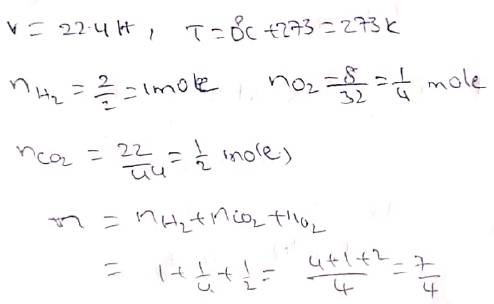 V = 22.4 lt, T = 0°C + 273 = 273K
nH₂ = 2/2 = 1mole nO₂ = 8/32 = 1/4 mole
nCO₂ = 22/44 = 1/2 mole)
n = nH₂ + nCO₂ + nO₂
= 1 + 1/4 + 1/2 = (4+1+2)/4 = 7/4